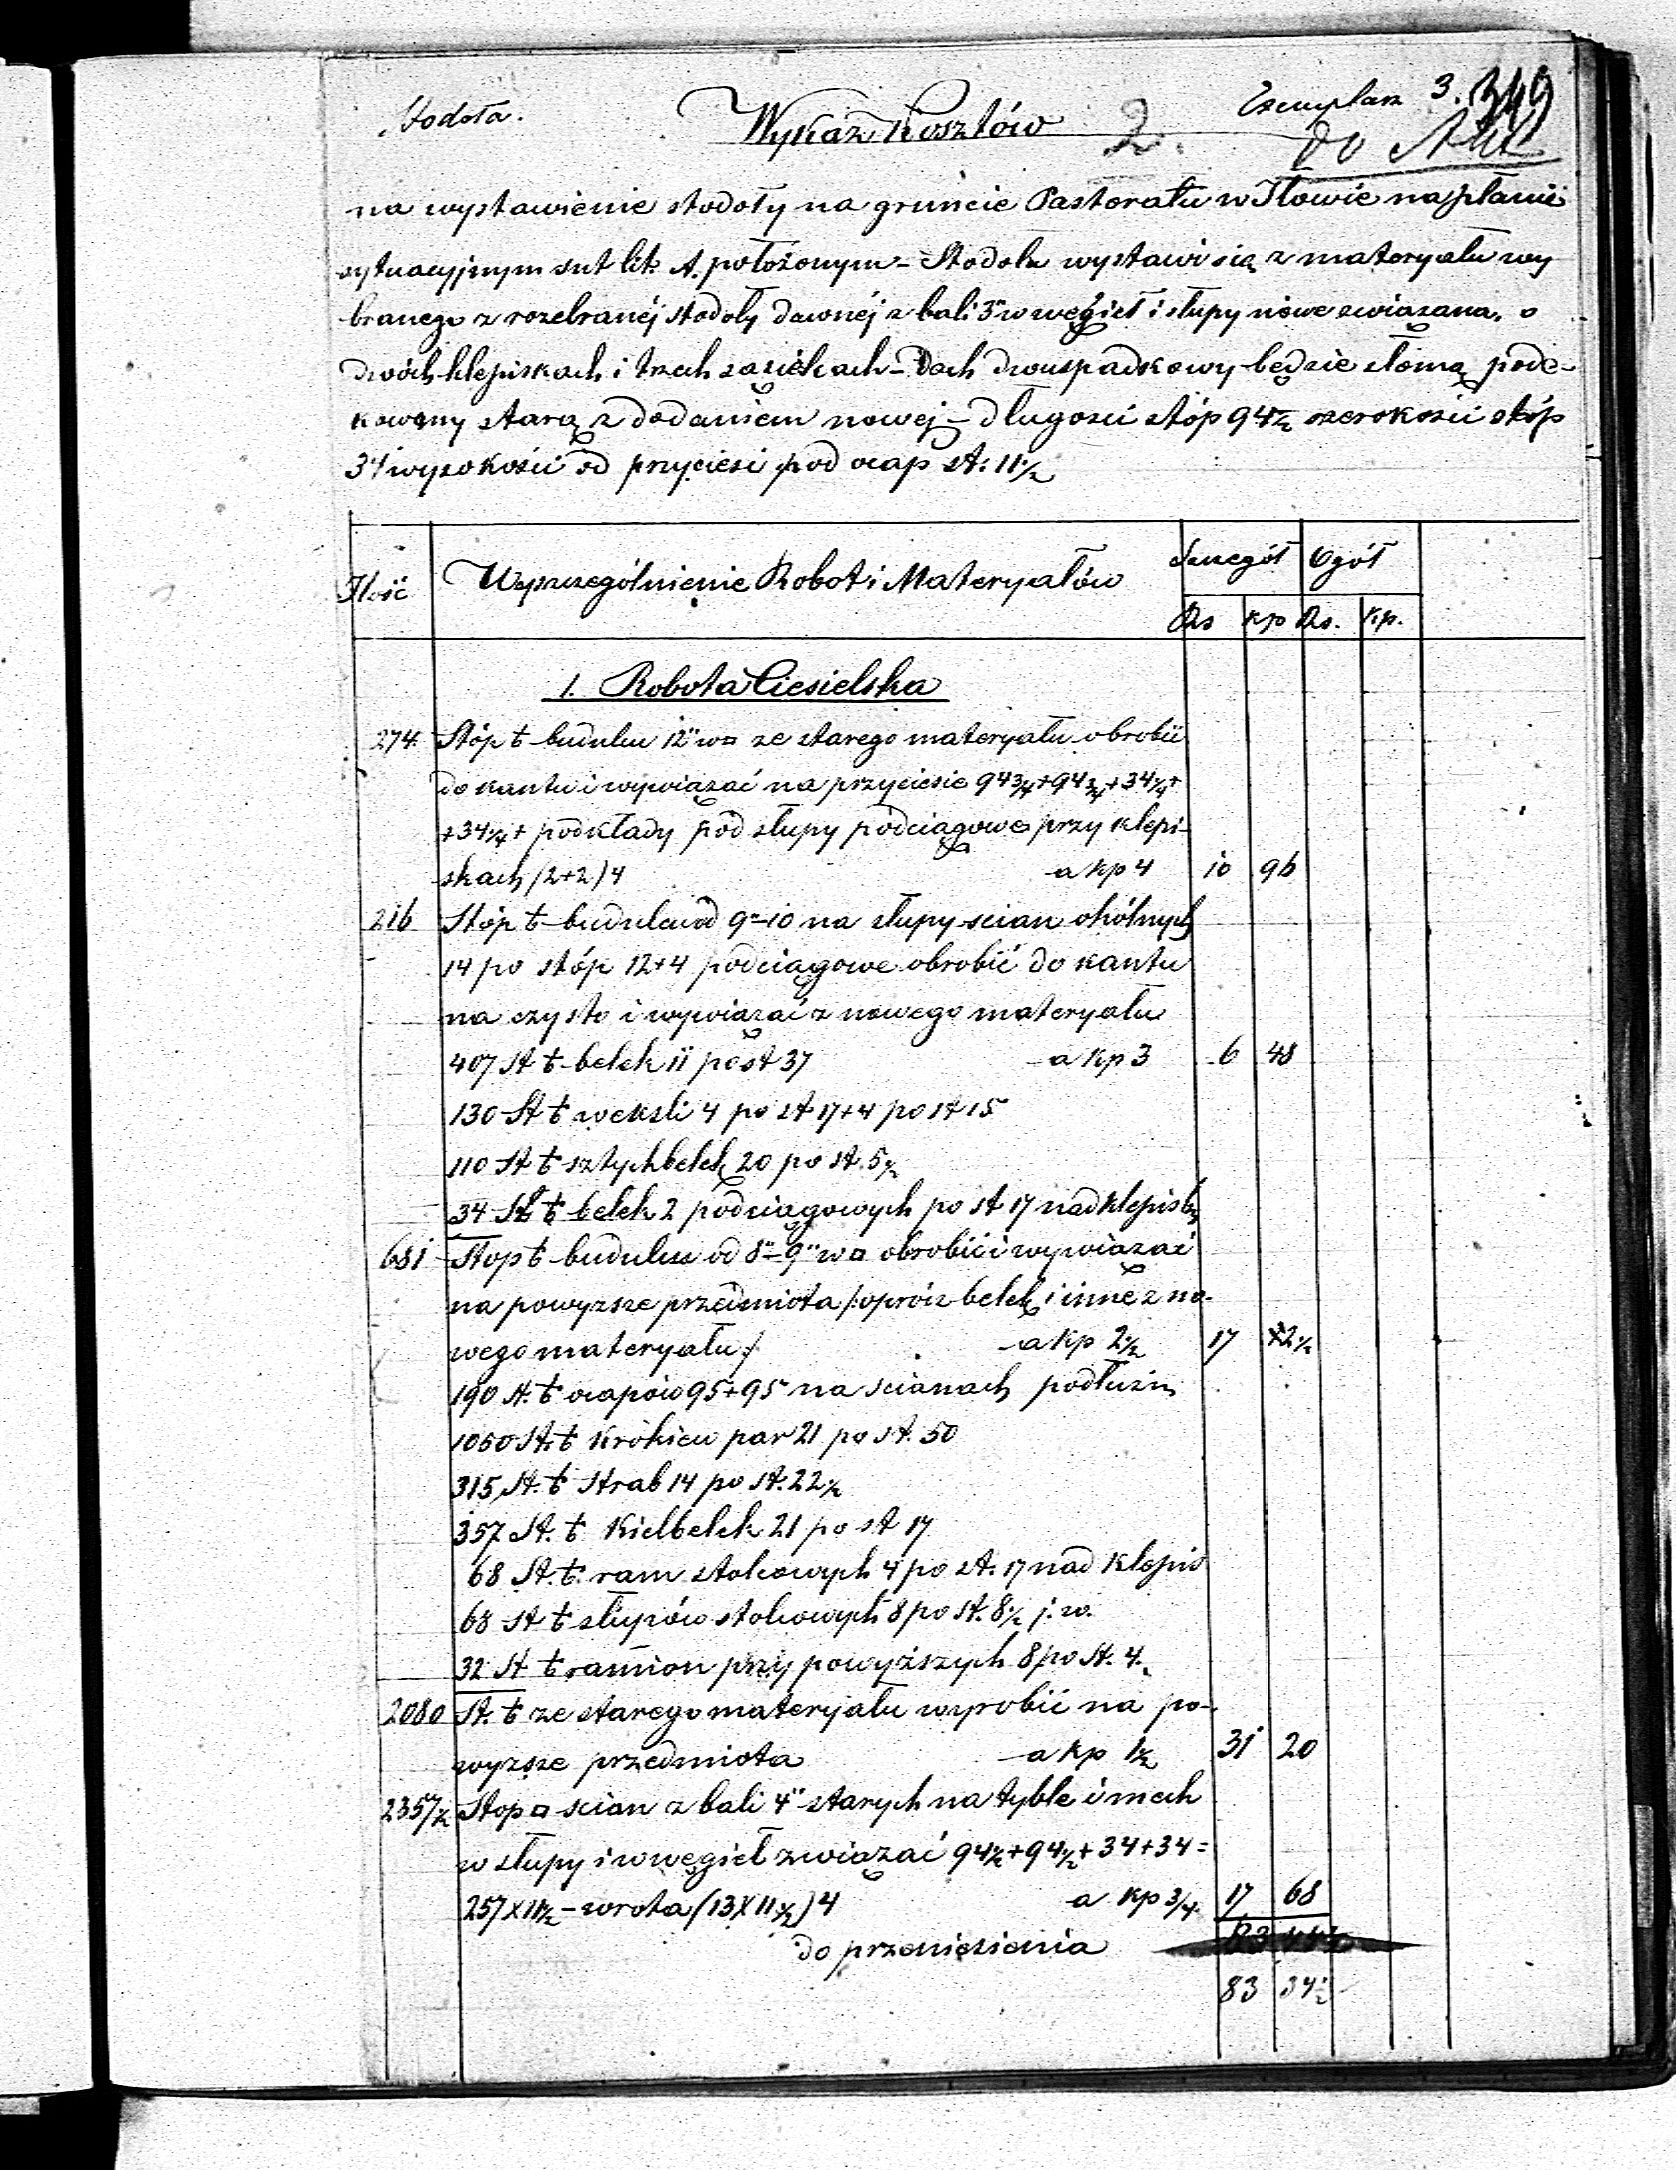 Stodoła.
Wykaz Kosztów
2.
Exemplarz 3.
349
do
na wystawienie stodoły na gruncie Pastoratu w Iłowie na planie
sytuacyjnym sub lit. A. położonym - Stodoła wystawi się z materyału wy
branego z rozebranéj stodoły dawnéj z bali 3" w węgieł i słupy nowe związana, o
dwóch klepiskach i trzech zasiekach - Dach dwuspadkowy będzie słomą pode-
kowany starą z dodaniem nowej - długosci stóp 94½ szerokości stóp
34 wysokości od przyciesi pod ocap st: 11½
Ilość
Wyszczególnienie Robot i Materyałów
Szczegół
Ogół
Rs kp Rs. kp.
1. Robota Ciesielska
274. Stóp b budulcu 12" w □ ze starego materyału obrobić
do kantu i wywiązać na przyciesie 94¾+94¾+34¼+
+34¼+ podkłady pod słupy podciągowe przy klepi-
skach /2+2/4 a kp 4 10 96
216 Stóp b budulcu od 9"-10 na słupy scian okólnych
14 po stóp 12+4 podciągowe obrobić do kantu
na czysto i wywiązać z nowego materyału
407 St b belek 11 po st 37 a kp 3 6 48
130 St b weksli 4 po st 17+4 po st 15
110 St b sztychbelek 20 po st. 5½
34 St b belek 2 podciągowych po st 17 nad klepisk
681 Stop b budulcu od 8"-9" w □ obrobić i wywiązać
na powyzsze przedmiota /:oprócz belek i inne z no-
wego materyału:/ a kp 2½ 17 2½
190 st. b ocapów 95+95 na scianach podłużn
1050 St. b Krokiew par 21 po st. 50
315 St. b Strab 14 po st. 22½
357 St. b Kielbelek 21 po st 17
68 St. b. ram stolcowych 4 po st. 17 nad klepis
68 St b słupów stolcowych 8 po st. 8½ j. w.
32 St b ramion przy powyższych 8 po st. 4.
2080 St. b ze starego materyału wyrobić na po-
wyzsze przedmiota a kp 1½ 31 20
2357½ Stop □ scian z bali 4" starych na tyble i mech
w słupy i w węgieł związać 94½+94½+34+34=
257X11½ - wrota (13X11½)4 a kp ¾. 17 68
do przeniesienia
83 34½